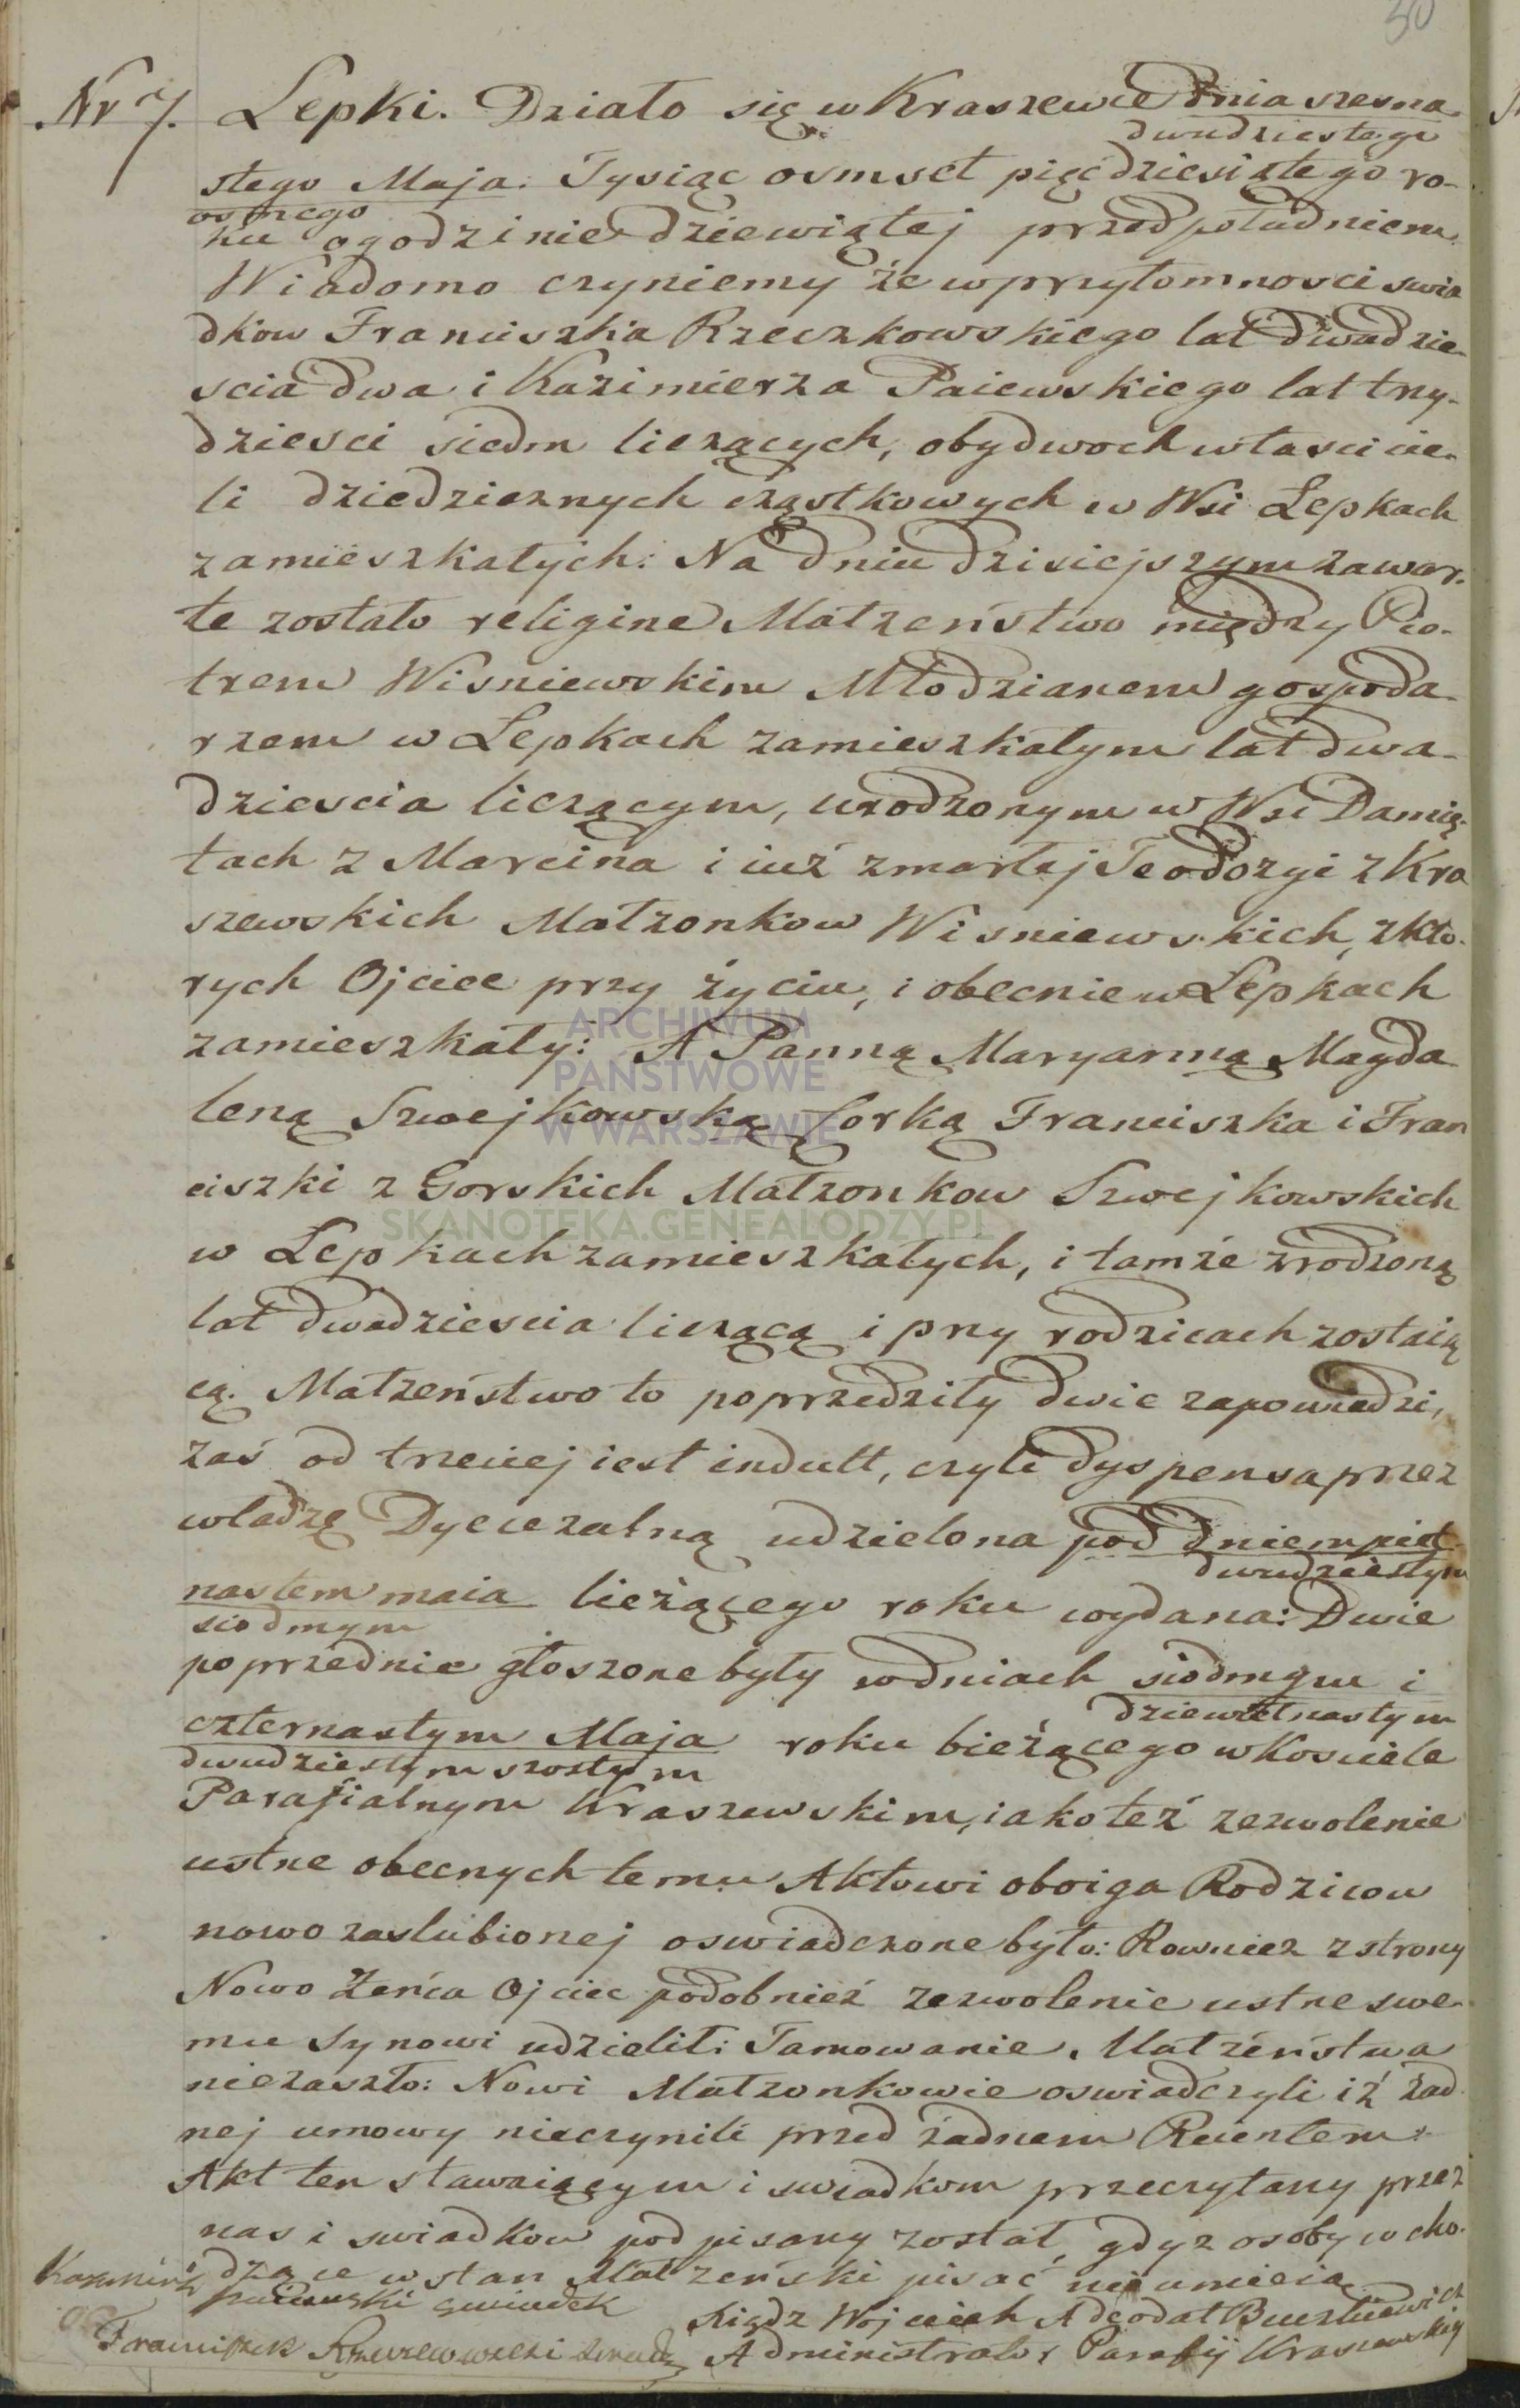 30
Nr 7. Lepki. Działo się w Kraszewie Dnia szesna-
dwudziestego
stego Maja. Tysiąc osmset pięcdziesiątego ro-
osmego
ku ogodzinie dziewiątej przedpołudniem.
Wiadomo czyniemy że wprzytomnosci swia
dkow Franciszka Rzeczkowskiego lat dwadzie-
scia dwa i Kazimierza Paiewskiego lat trzy-
dziesci siedm liczących, obydwoch włascicie-
li dziedzicznych cząstkowych w Wsi Lepkach
zamieszkałych: Na dniu dzisiejszym zawar-
te zostało religine Małzeństwo między Pio-
trem Wisniewskim Młodzianem gospoda-
rzem w Lepkach zamieszkałym lat dwa-
dziescia liczącym, urodzonym w Wsi Damię-
tach z Marcina i iuż zmarłej Teodozyi z Kra
szewskich Małzonkow Wisniewskich, z kto-
rych Ojciec przy życiu, i obecnie w Lepkach
zamieszkały: A Panną Maryanną Magda
leną Szwejkowską Corką Franciszka i Fran
ciszki z Gorskich Małzonkow Szwejkowskich
w Lepkach zamieszkałych, i tamże zrodzoną
lat dwadziescia liczącą i przy rodzicach zostaią
cą. Małzeństwo to poprzedziły dwie zapowiedzi,
zaś od trzeciej iest indult, czyli dyspensa przez
władzę Dyecezalną udzielona pod dniem piet-
dwudziestym
nastem maia bieżącego roku wydana: Dwie
siodmym
poprzednie głoszone były w dniach siodmym i
dziewietnastym
czternastym Maja roku bieżącego w Kosciele
dwudziestym szostym
Parafialnym Kraszewskim, iako też zezwolenie
ustne obecnych temu Aktowi oboiga Rodzicow
nowo zaslubionej oswiadczone było: Rowniez z strony
Nowo Żeńca Ojciec podobnież zezwolenie ustne swe-
mu Synowi udzielił: Tamowanie Małżeństwa
niezaszło: Nowi Małzonkowie oswiadczyli iż żad
nej umowy nieczynili przed żadnem Reientem.
Akt ten stawaiącym i swiadkom przeczytany przez
nas i swiadkow podpisany został, gdyz osoby wcho-
dzące w stan Małżeński pisać nie umieią.
Kazimirz
Paiewski swiadek
Xiądz Wojciech Adeodat
Franciszek
Administrator Parafij Kraszewskiej
ARCHIWUM
PAŃSTWOWE
W WARSZAWIE
SKANOTEKA.GENEALODZY.PL